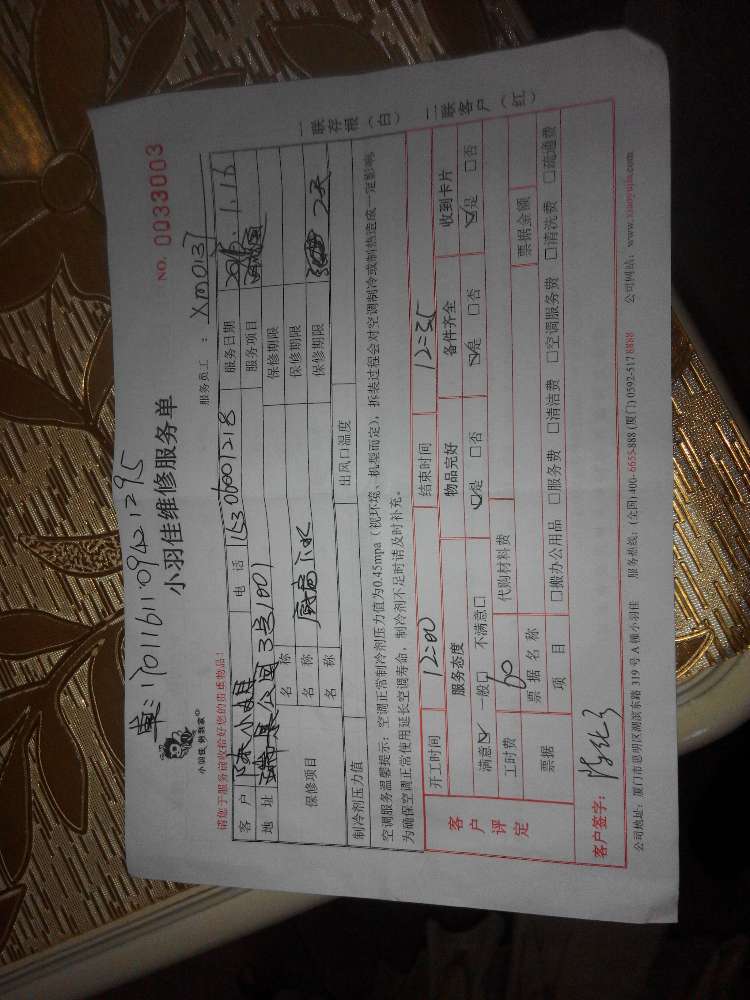 单:1701161109421295
小羽佳 师到家
小羽佳维修服务单
NO. 0033003
请您于服务前收拾好您的贵重物品!
服务员工 : Xm0137
客 户 小姐 电 话 15306001218 服务日期 1.16
地 址 公园 3 1001 服务项目
保修项目 名 称 保修期限
名 称 厨房下水 保修期限
名 称 保修期限 2天
制冷剂压力值 出风口温度
空调服务温馨提示:空调正常制冷剂压力值为0.45mpa(视环境、机型而定),拆装过程会对空调制冷或制热造成一定影响,
为确保空调正常使用延长空调寿命,制冷剂不足时请及时补充。
客户评定
开工时间 12=00 结束时间 12=35
服务态度 物品完好 备件齐全 收到卡片
满意☑ 一般□ 不满意□ ☑是 □否 ☑是 □否 ☑是 □否
工时费 60 代购材料费
票据 票 据 名 称 票据金额
项 目 □搬办公用品 □服务费 □清洁费 □空调服务费 □清洗费 □疏通费
客户签字:
公司地址:厦门市思明区湖滨东路 319 号 A 幢小羽佳 服务热线:(全国)400-6655-888 (厦门) 0592-517 8888 公司网站:www.xiaoyujia.com
一联存根(白)
二联客户(红)